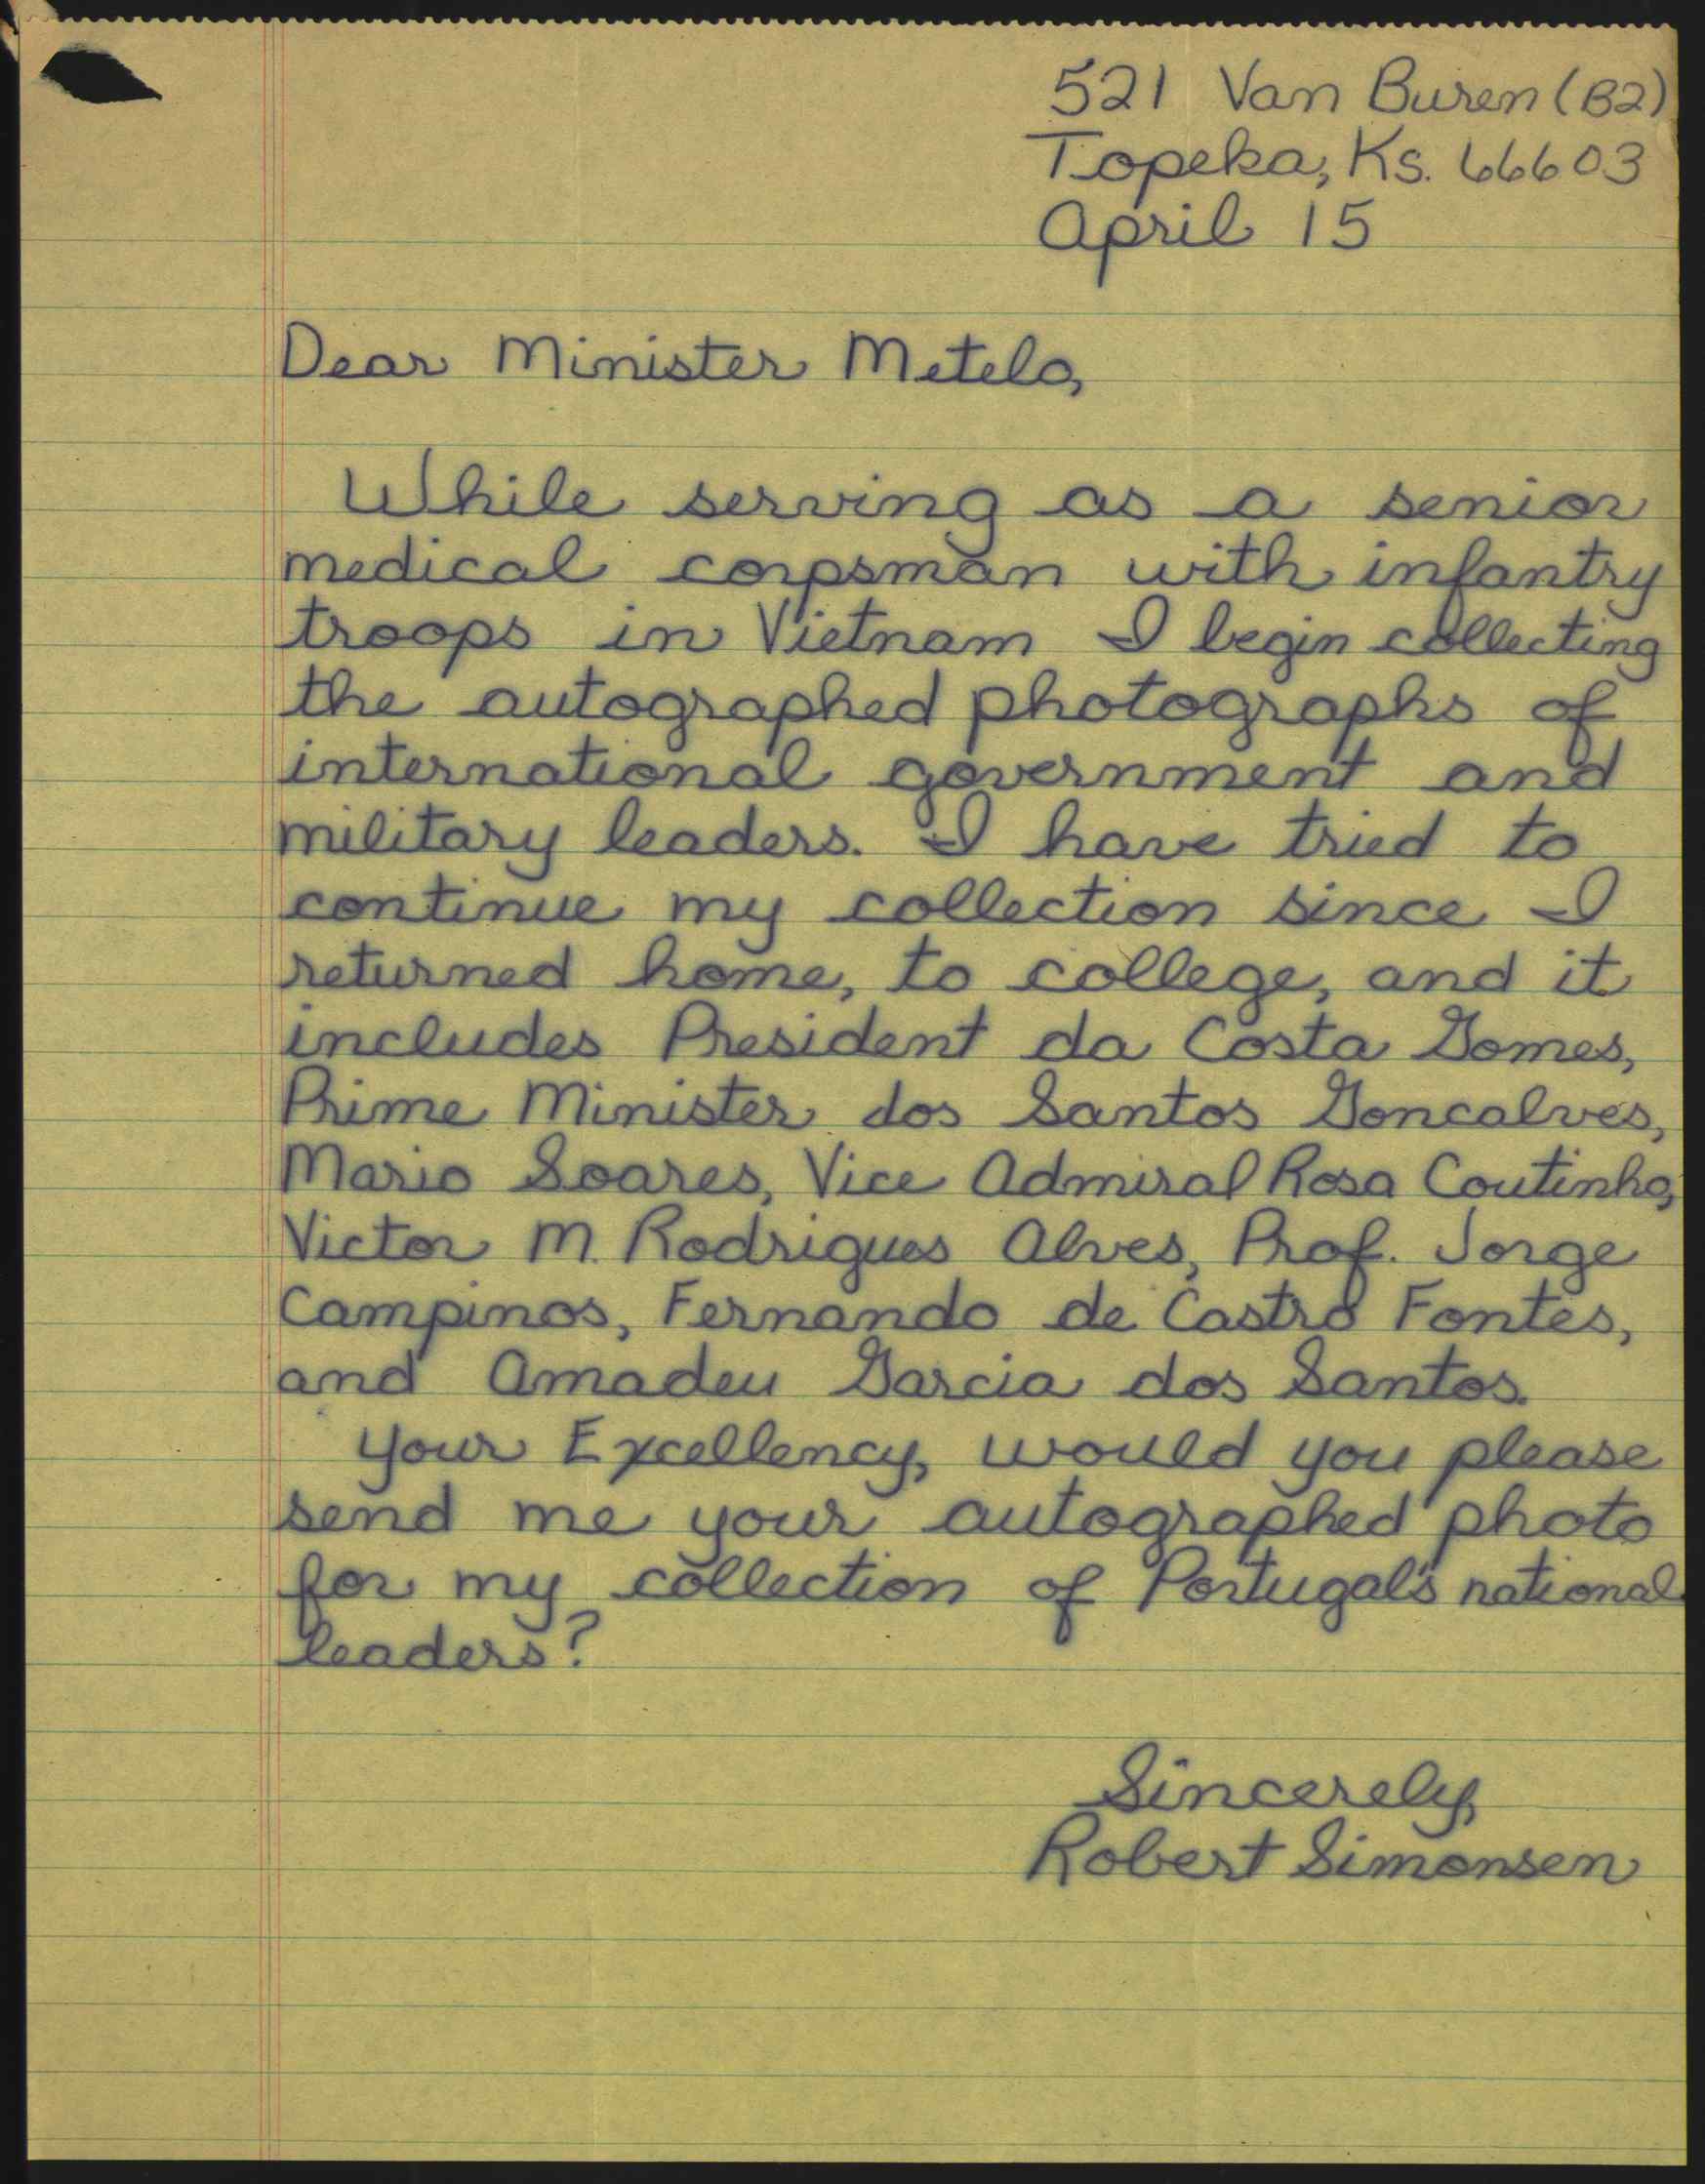 521 Van Buren (B2)
Topeka, Ks. 66603
April 15
Dear Minister Metelo,
While serving as a senior
medical corpsman with infantry
troops in Vietnam I begin collecting
the autographed photographs of
international government and
military leaders. I have tried to
continue my collection since I
returned home, to college, and it
includes President da Costa Gomes,
Prime Minister dos Santos Goncalves,
Mario Soares, Vice Admiral Rosa Coutinho,
Victor M. Rodrigues Alves, Prof. Jorge
Campinos, Fernando de Castro Fontes,
and Amadeu Garcia dos Santos.
Your Excellency, would you please
send me your autographed photo
for my collection of Portugal's national
leaders?
Sincerely,
Robert Simonsen